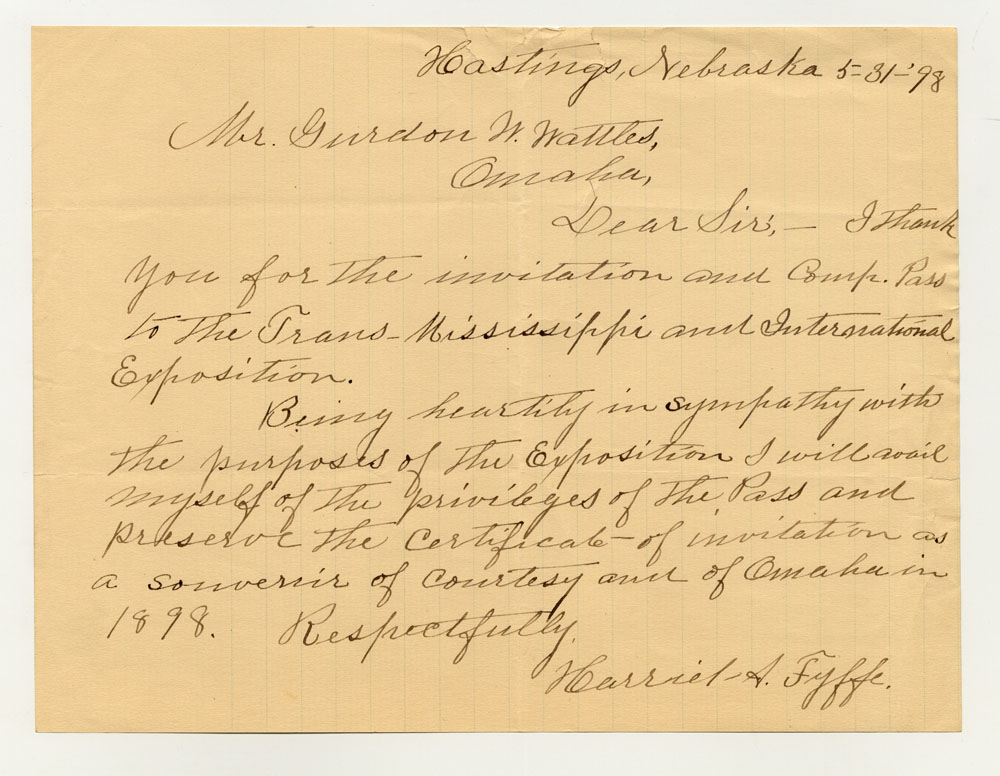 Hastings, Nebraska 5-31-'98
Mr. Gurdon W. Wattles,
Omaha,
Dear Sir;— I thank
you for the invitation and Comp. Pass
to the Trans-Mississippi and International
Exposition.
Being heartily in sympathy with
the purposes of the Exposition I will avail
myself of the privileges of the Pass and
preserve the certificate of invitation as
a souvenir of courtesy and of Omaha in
1898. Respectfully,
Harriet A. Fyffe.